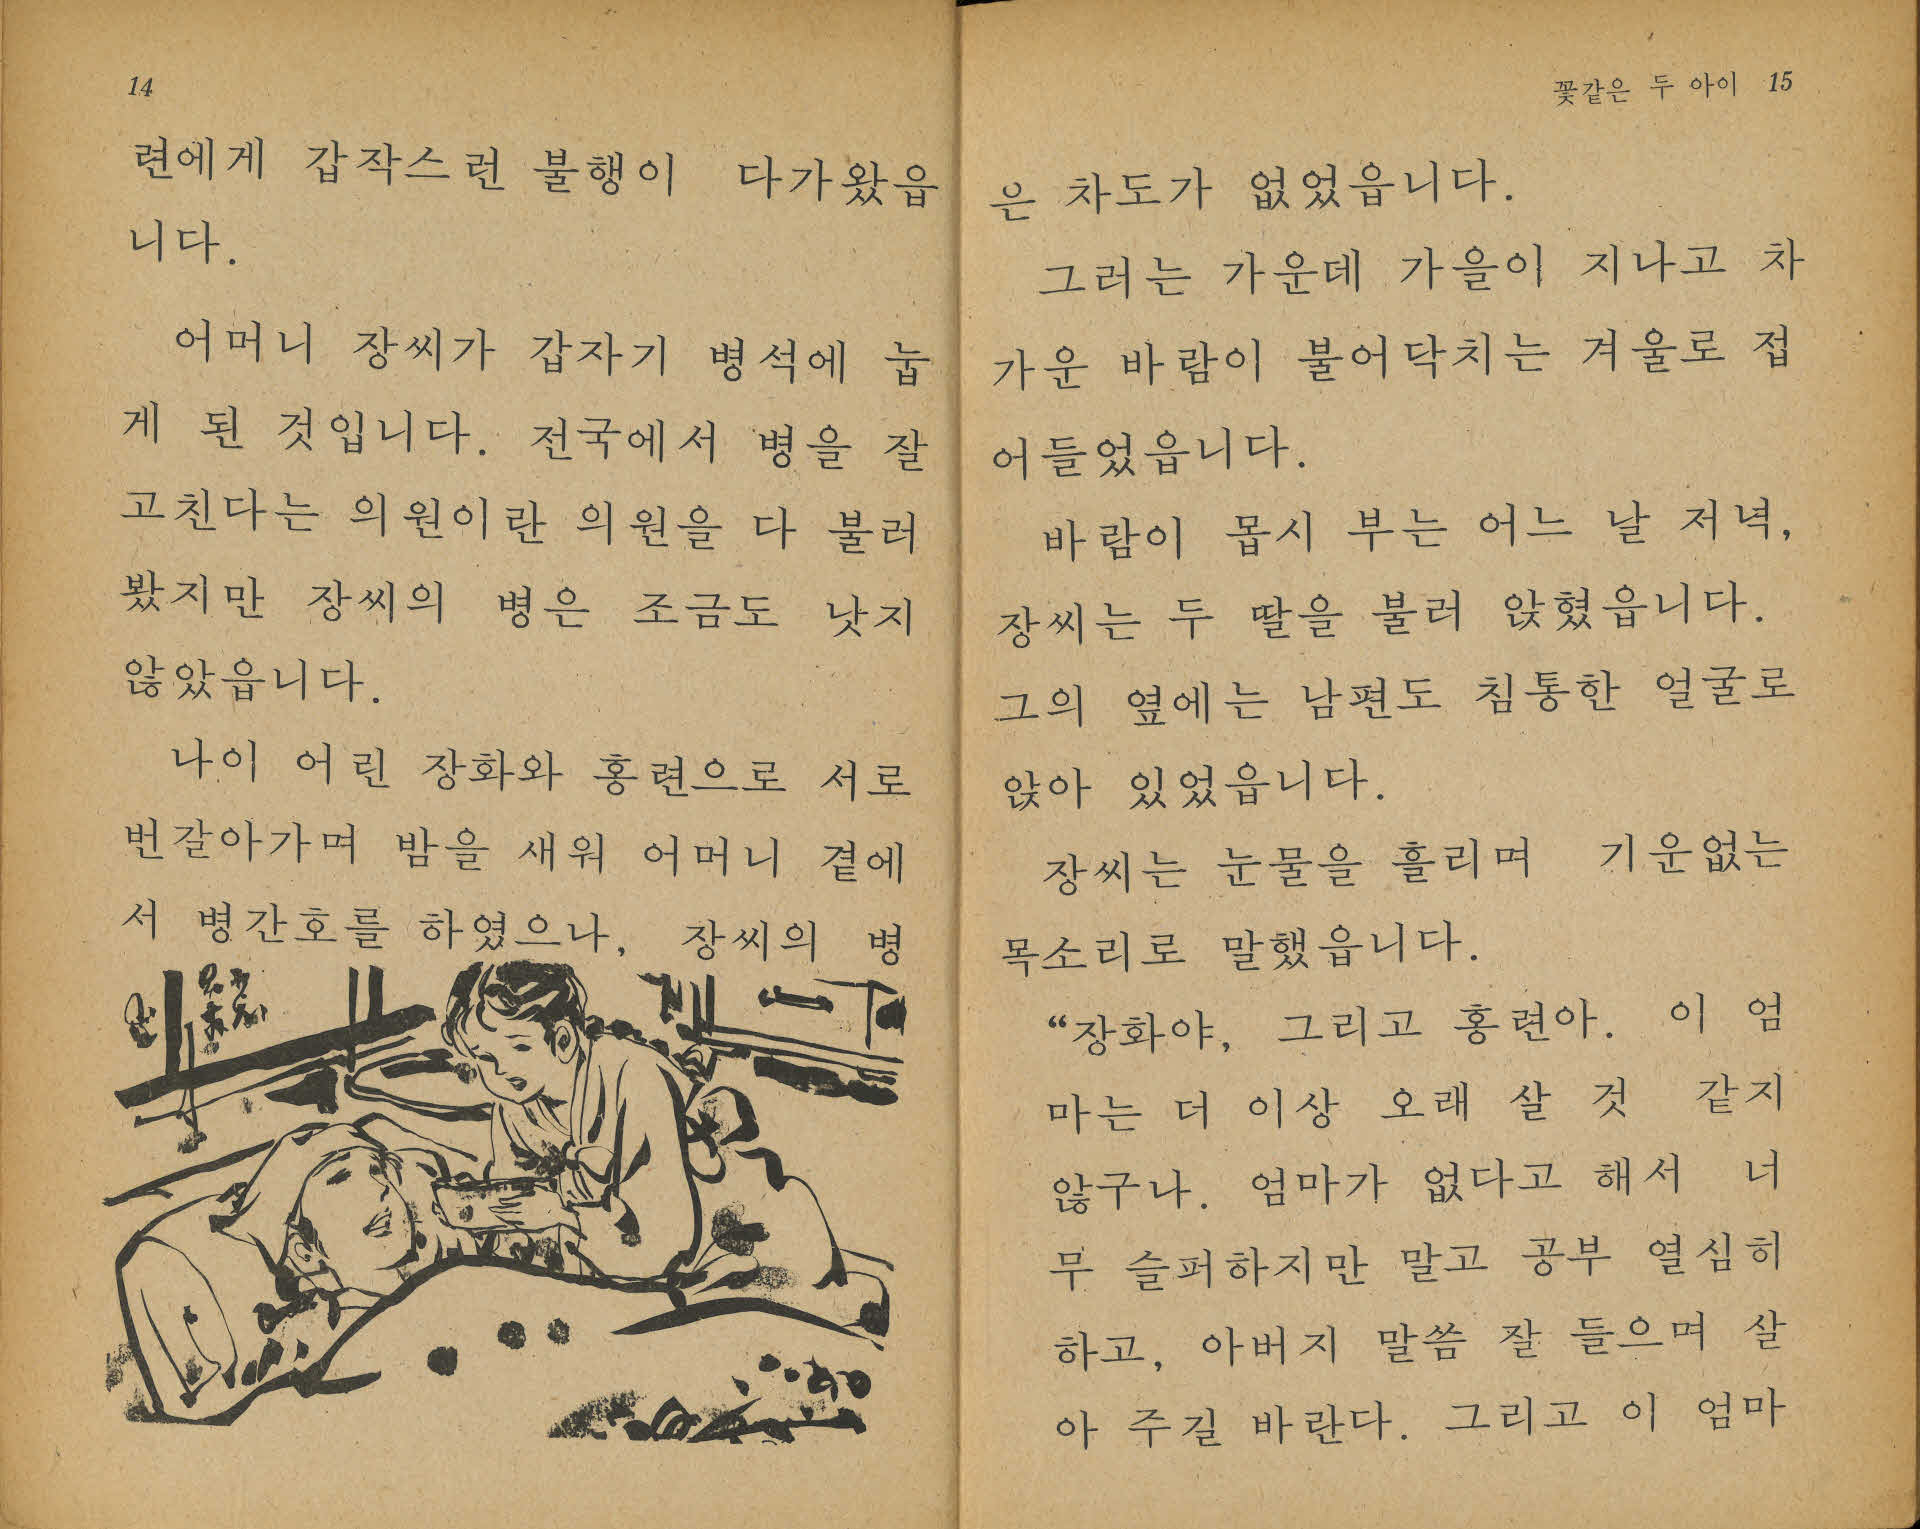 14
련에게 갑작스런 불행이 다가왔읍
니다.
어머니 장씨가 갑자기 병석에 눕
게 된 것입니다. 전국에서 병을 잘
고친다는 의원이란 의원을 다 불러
봤지만 장씨의 병은 조금도 낫지
않았읍니다.
나이 어린 장화와 홍련으로 서로
번갈아가며 밤을 새워 어머니 곁에
서 병간호를 하였으나, 장씨의 병
꽃같은 두 아이 15
은 차도가 없었읍니다.
그러는 가운데 가을이 지나고 차
가운 바람이 불어닥치는 겨울로 접
어들었읍니다.
바람이 몹시 부는 어느 날 저녁,
장씨는 두 딸을 불러 앉혔읍니다.
그의 옆에는 남편도 침통한 얼굴로
앉아 있었읍니다.
장씨는 눈물을 흘리며 기운없는
목소리로 말했읍니다.
“장화야, 그리고 홍련아. 이 엄
마는 더 이상 오래 살 것 같지
않구나. 엄마가 없다고 해서 너
무 슬퍼하지만 말고 공부 열심히
하고, 아버지 말씀 잘 들으며 살
아 주길 바란다. 그리고 이 엄마